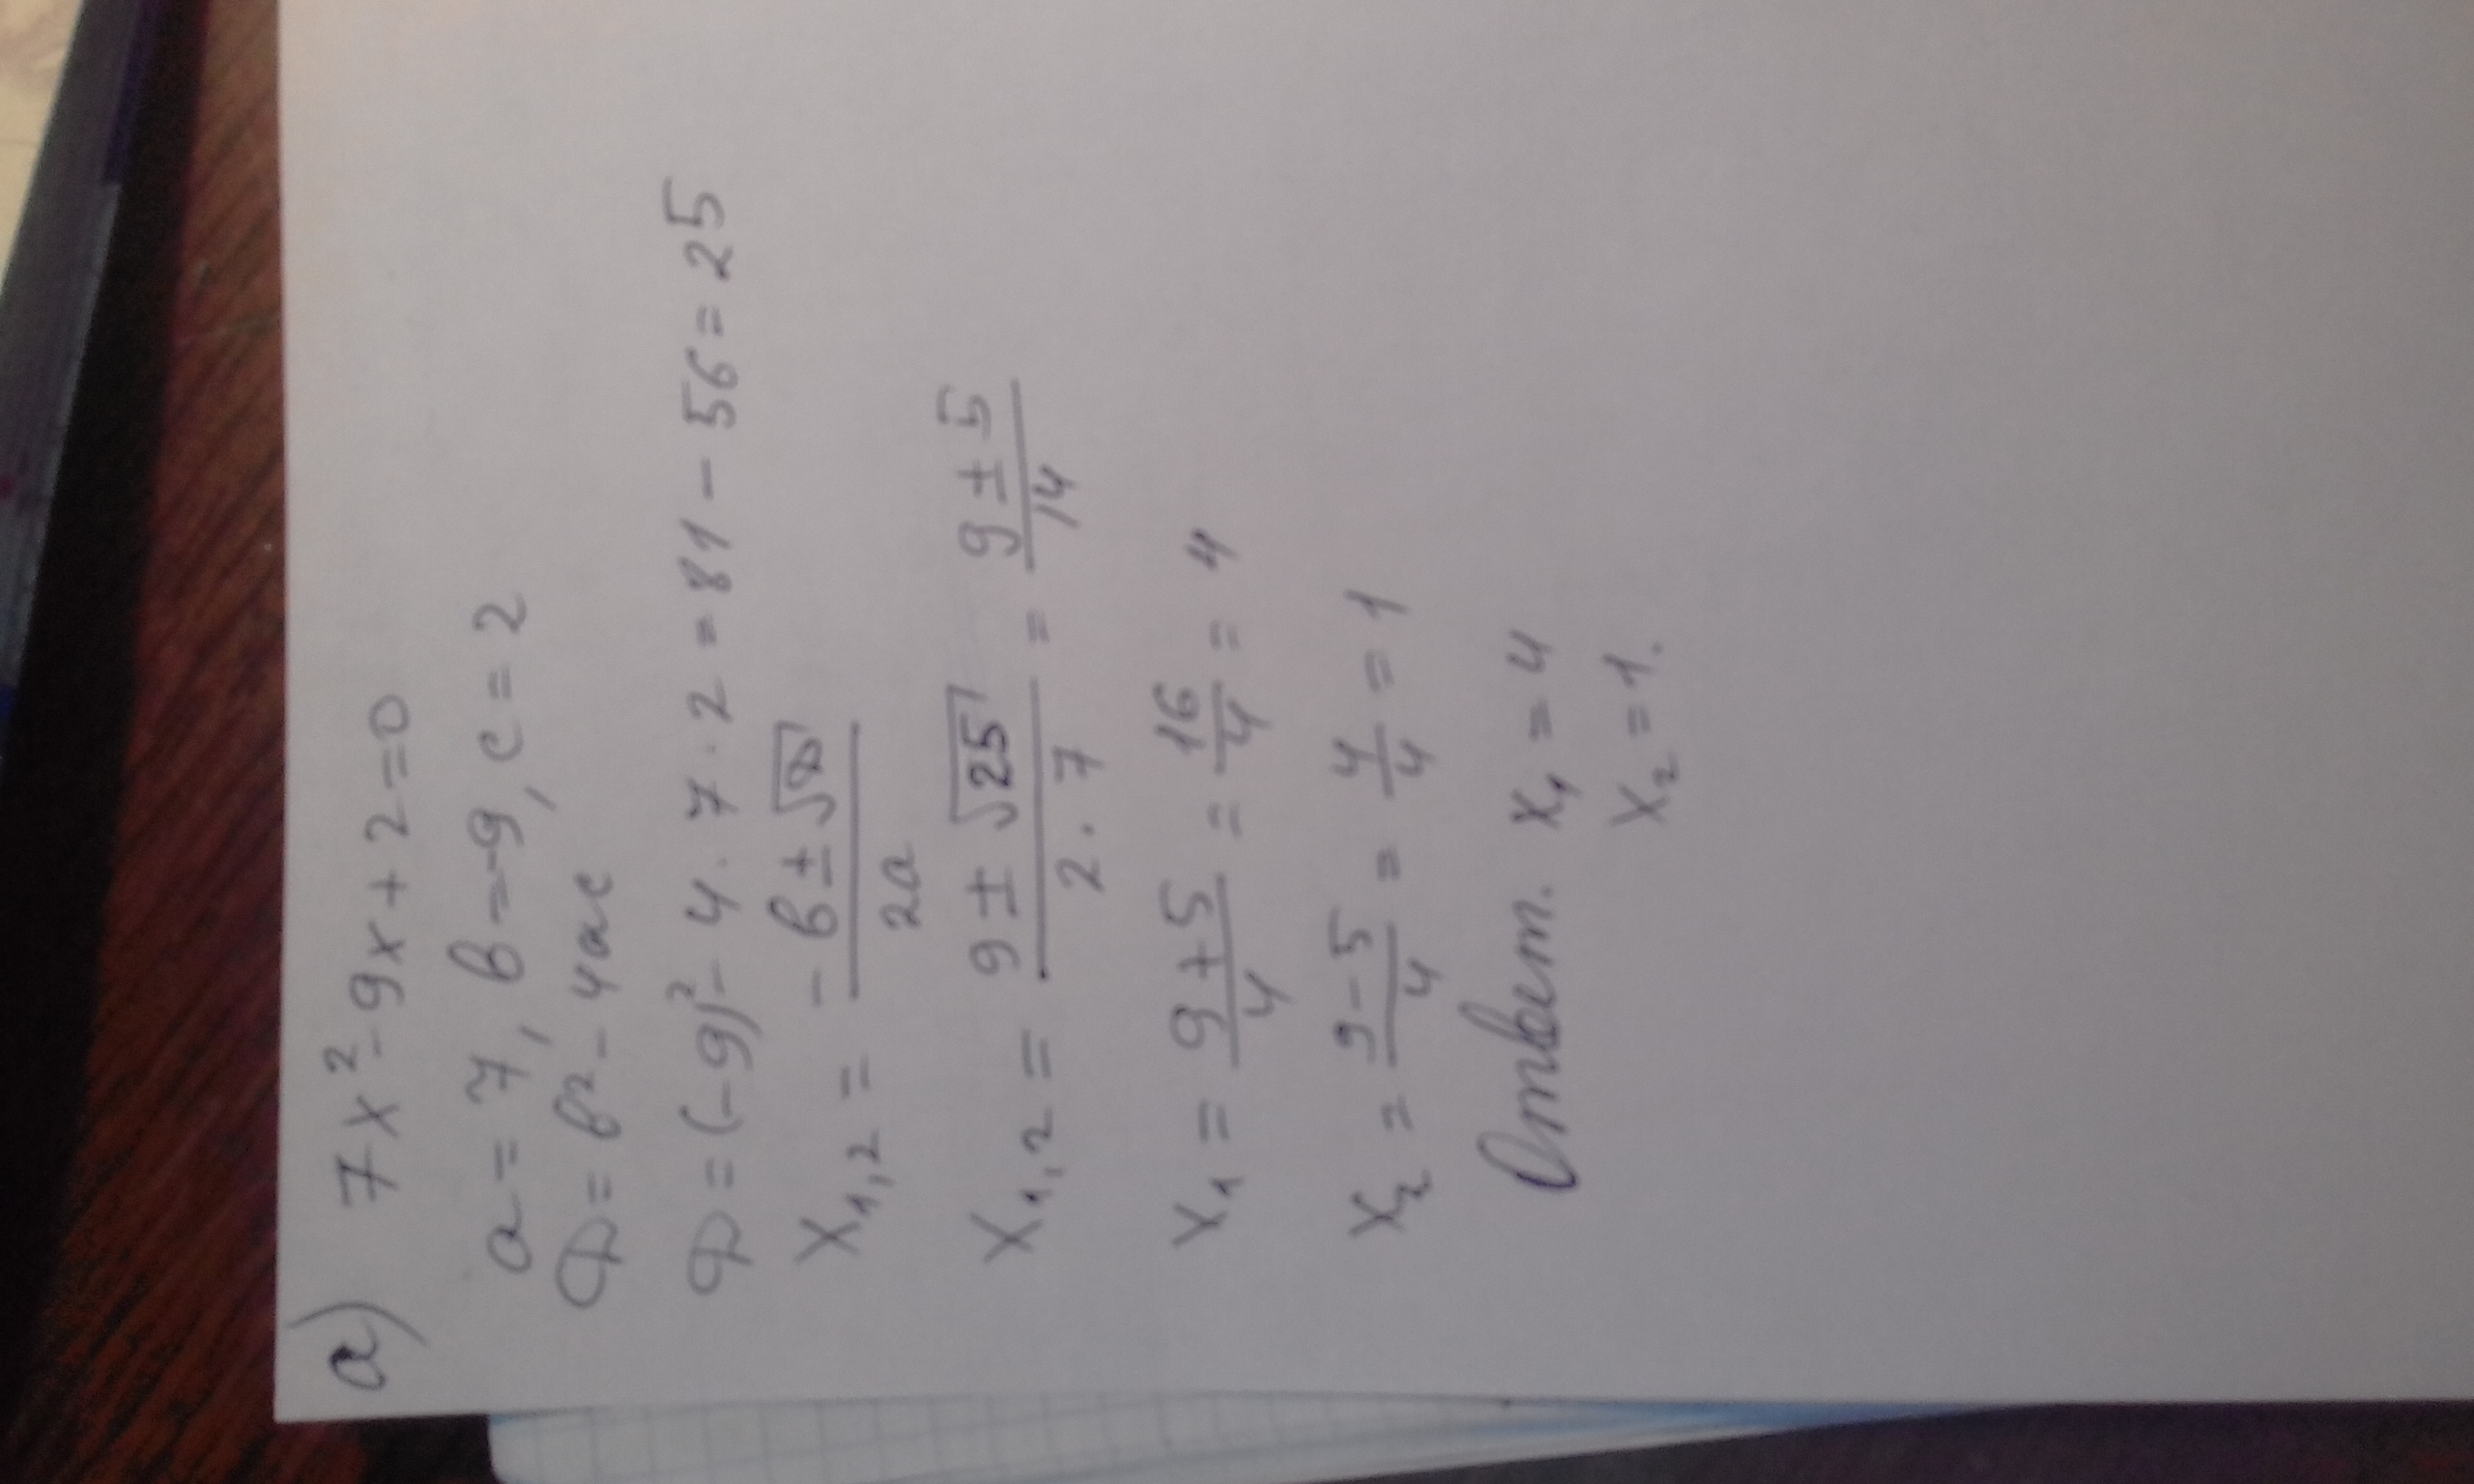 а) 7x² - 9x + 2 = 0
a = 7, b = -9, c = 2
D = b² - 4ac
D = (-9)² - 4 · 7 · 2 = 81 - 56 = 25
x₁,₂ = (-b ± √D) / 2a
x₁,₂ = (9 ± √25) / (2 · 7) = (9 ± 5) / 14
x₁ = (9 + 5) / 4 = 16/4 = 4
x₂ = (9 - 5) / 4 = 4/4 = 1
Ответ. x₁ = 4
x₂ = 1.